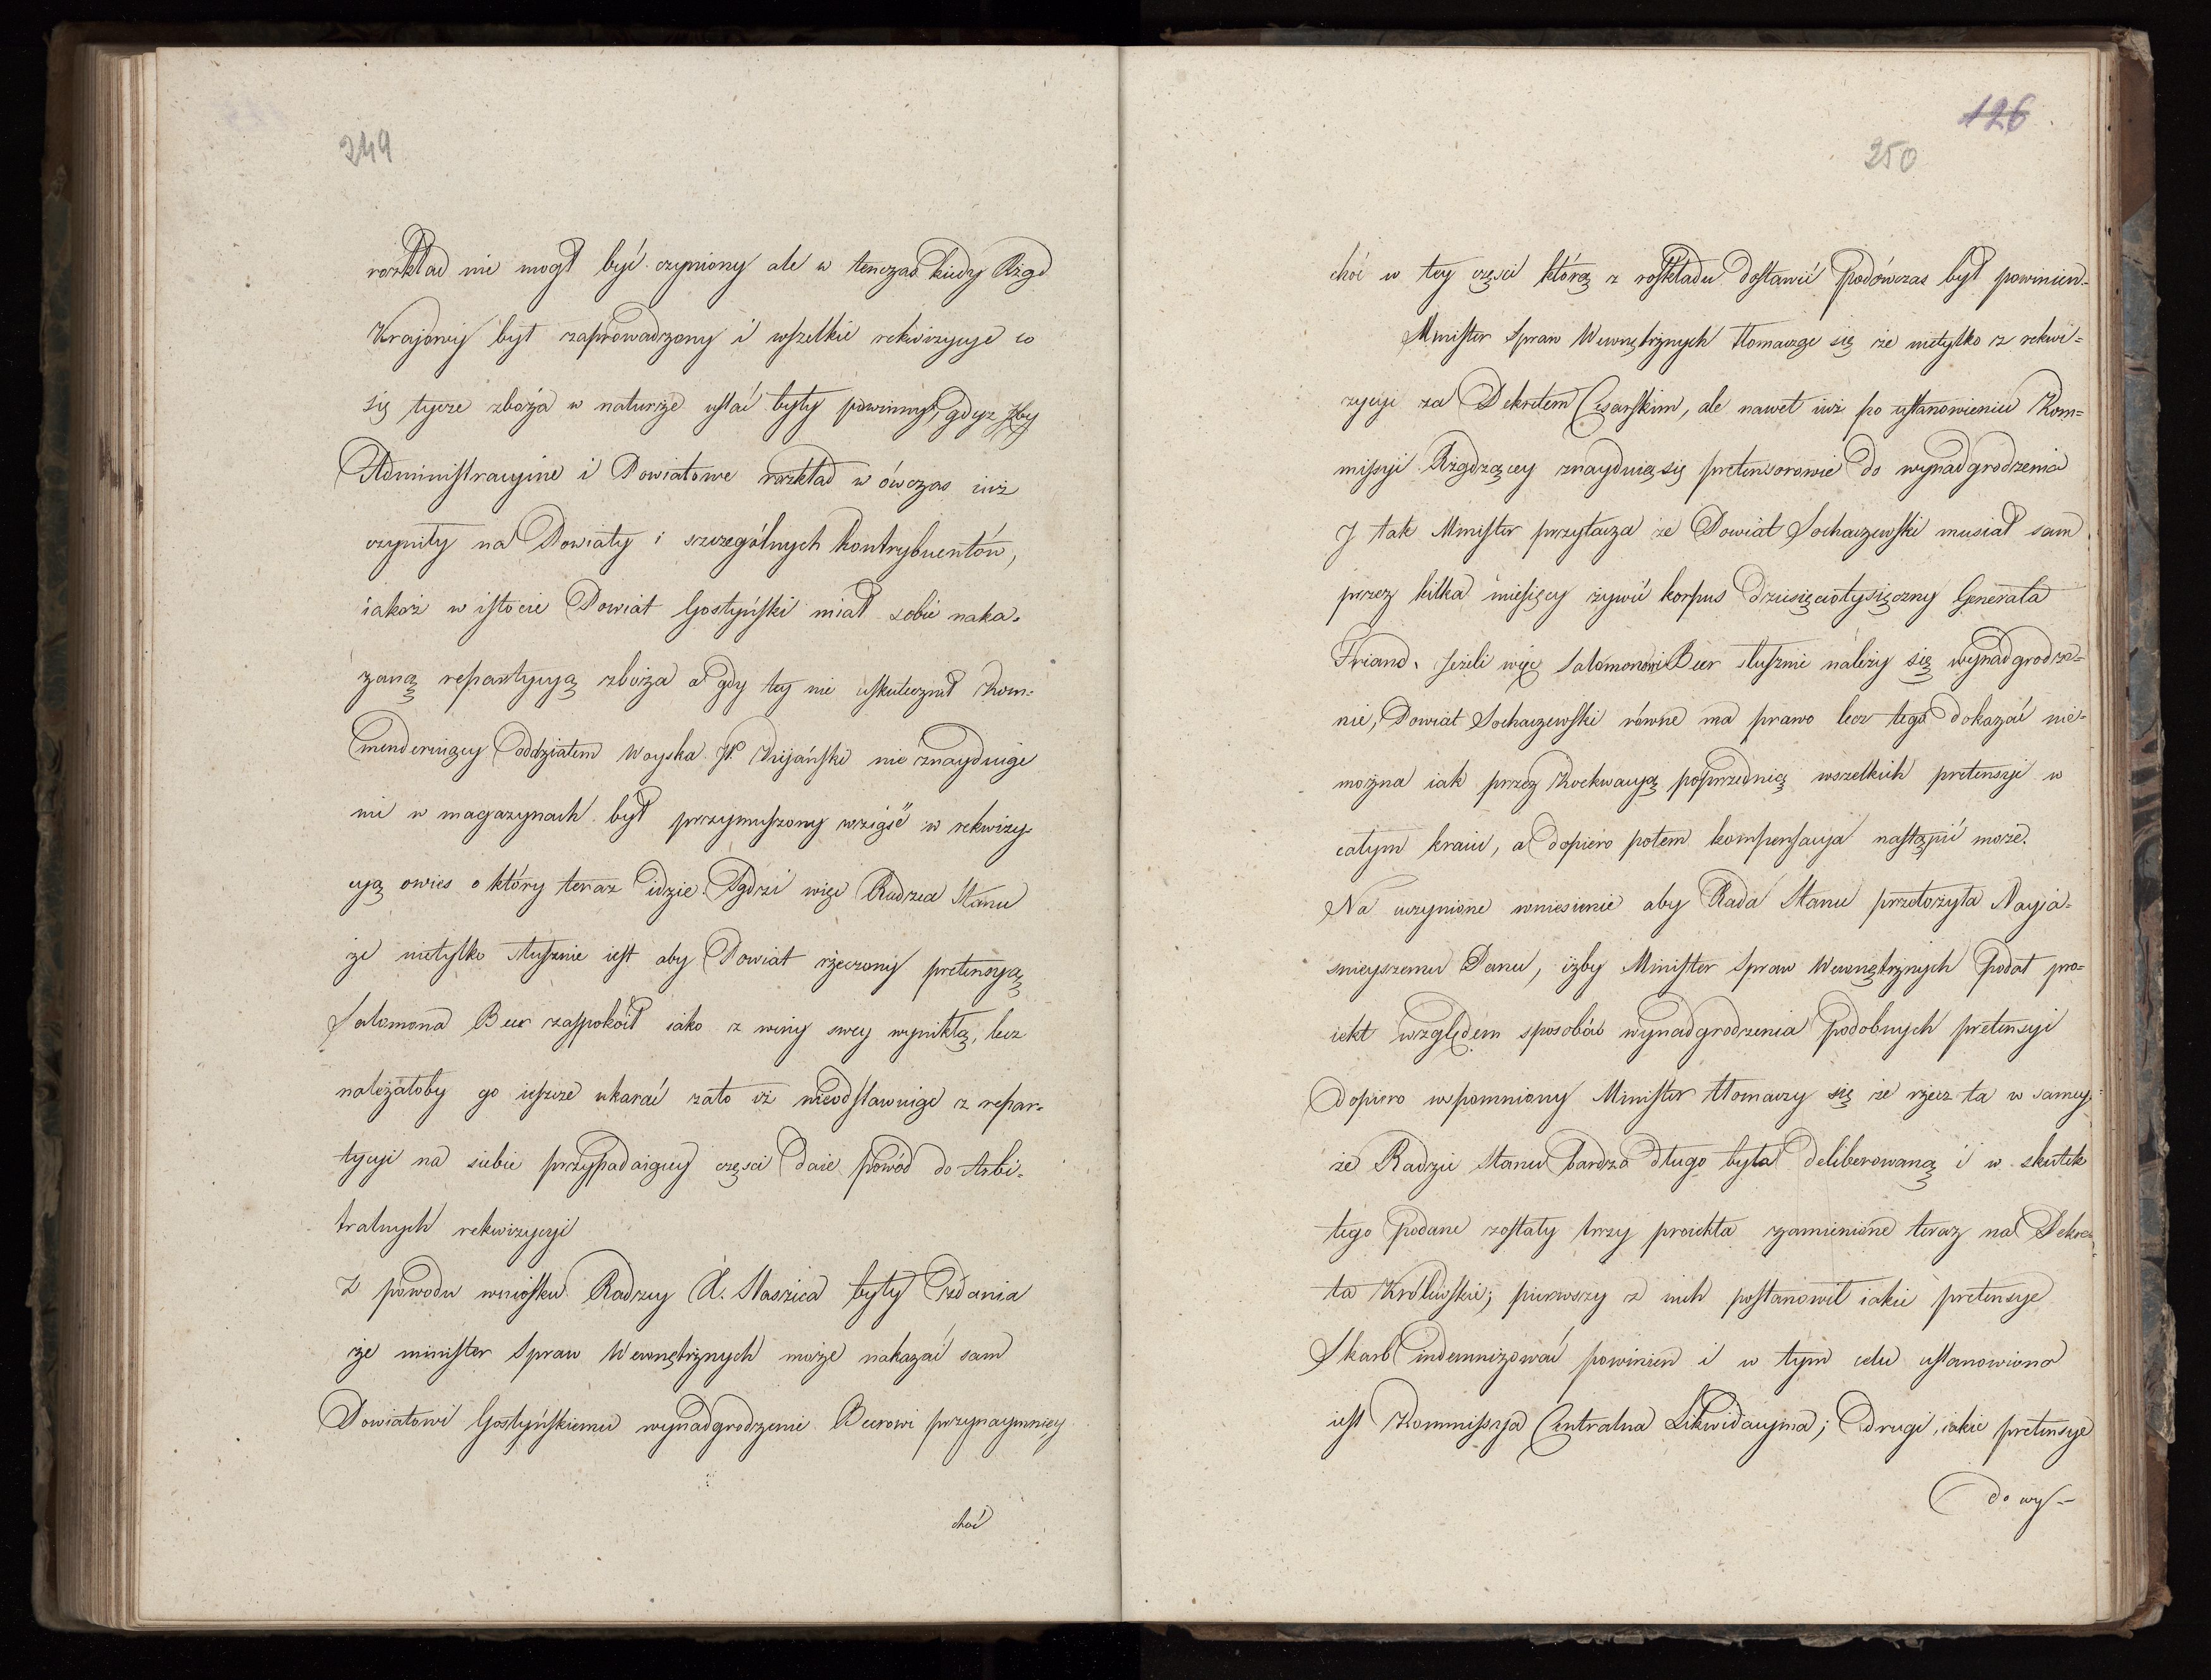 249
rozkład nie mogł być czyniony ale w tenczas kiedy Rząd
Krajowy był zaprowadzony i wszelkie rekwizycye co
się tycze zboża w naturze ustać były powinny, gdyz Jzby
Administracyine i Powiatowe rozkład w ówczas iuż
czyniły na Powiaty i szczególnych kontrybuentów,
iakoż w istocie Powiat Gostyński miał sobie naka-
zaną repartycyą zboża a gdy tey nie uskutecznił Kom-
menderuiący Oddziałem Woyska JP. nie znayduiąc
nic w magazynach był przymuszony wziąść w rekwizy-
cyą owies o który teraz idzie. Sądzi więc Radzca Stanu
że nietylko słusznie iest aby Powiat rzeczony pretensyą
Salomona Beer zaspokoił iako z winy swey wynikłą, lecz
należałoby go ieszcze ukarać zato iż nieodstawuiąc z repar-
tycyi na siebie przypadaiącey części daie powód do Arbi-
tralnych rekwizycyi
Z powodu wniosku Radzcy X. Staszica były zdania
że minister Spraw Wewnętrznych może nakazać sam
Powiatowi Gostyńskiemu wynadgrodzenie Beerowi przynaymniey
choć
126
250
choć w tey części którą z rozkładu dostawić podówczas był powinien.
Minister Spraw Wewnętrznych tłomaczy się że nietylko z rekwi-
zycyi za Dekretem Cesarskim, ale nawet iuż po ustanowieniu Kom-
missyi Rządzącey znayduią się pretensorowie do wynadgrodzenia
J tak Minister przytacza że Powiat Sochaczewski musiał sam
przez kilka miesięcy żywić korpus dziesięciotysięczny Generała
Friand. Jeżeli więc Salomonowi Beer słusznie należy się wynadgrodze-
nie, Powiat Sochaczewski równe ma prawo lecz tego dokazać nie-
można iak przez poprzednią wszelkich pretensyi w
całym kraiu, a dopiero potem kompensacya nastąpić może.
Na uczynione wniesienie aby Rada Stanu przełożyła Nayja-
snieyszemu Panu, iżby Minister Spraw Wewnętrznych podał pro-
iekt względem sposobów wynadgrodzenia podobnych pretensyi
dopiero wspomniony Minister tłomaczy się że rzecz ta w samey-
że Radzie Stanu bardzo długo była deliberowaną i w skutek
tego podane zostały trzy proiekta zamienione teraz na Dekre-
ta Królewskie; pierwszy z nich postanowił iakie pretensye
Skarb indemnizować powinien i w tym celu ustanowiona
iest Kommissya Centralna Likwidacyina; drugi, iakie pretensye
do wy-